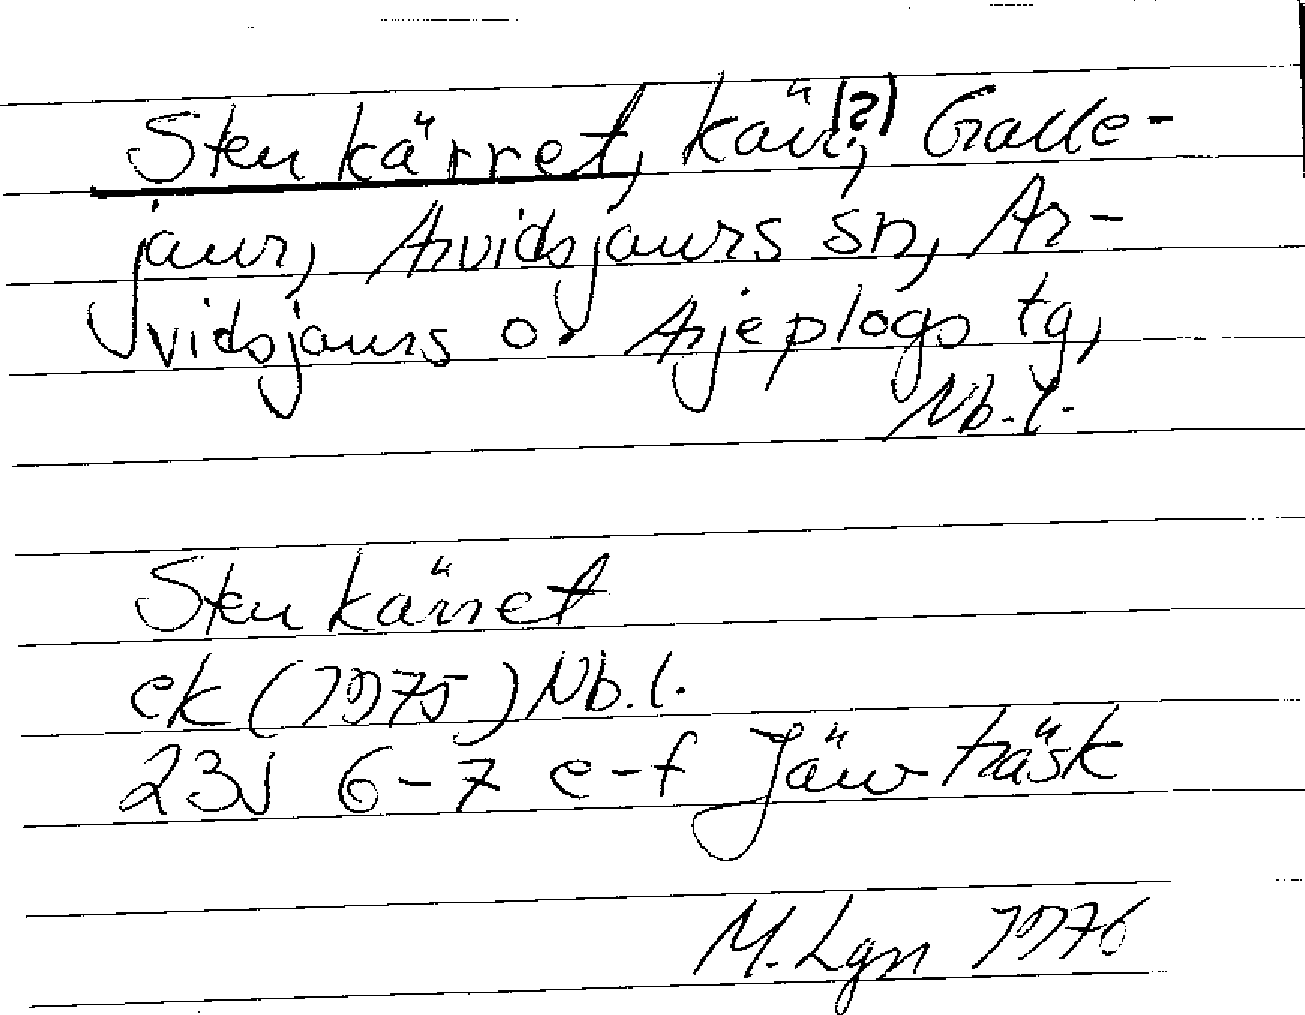 Stenkärret, kärr(?), Galle-
jaur, Arvidsjaurs sn, Ar-
vidsjaurs o. Arjeplogs tg,
Nb.l.
Stenkärret
ek (1975) Nb.l.
23J 6-7 e-f Järvträsk
M. Lgn 1976